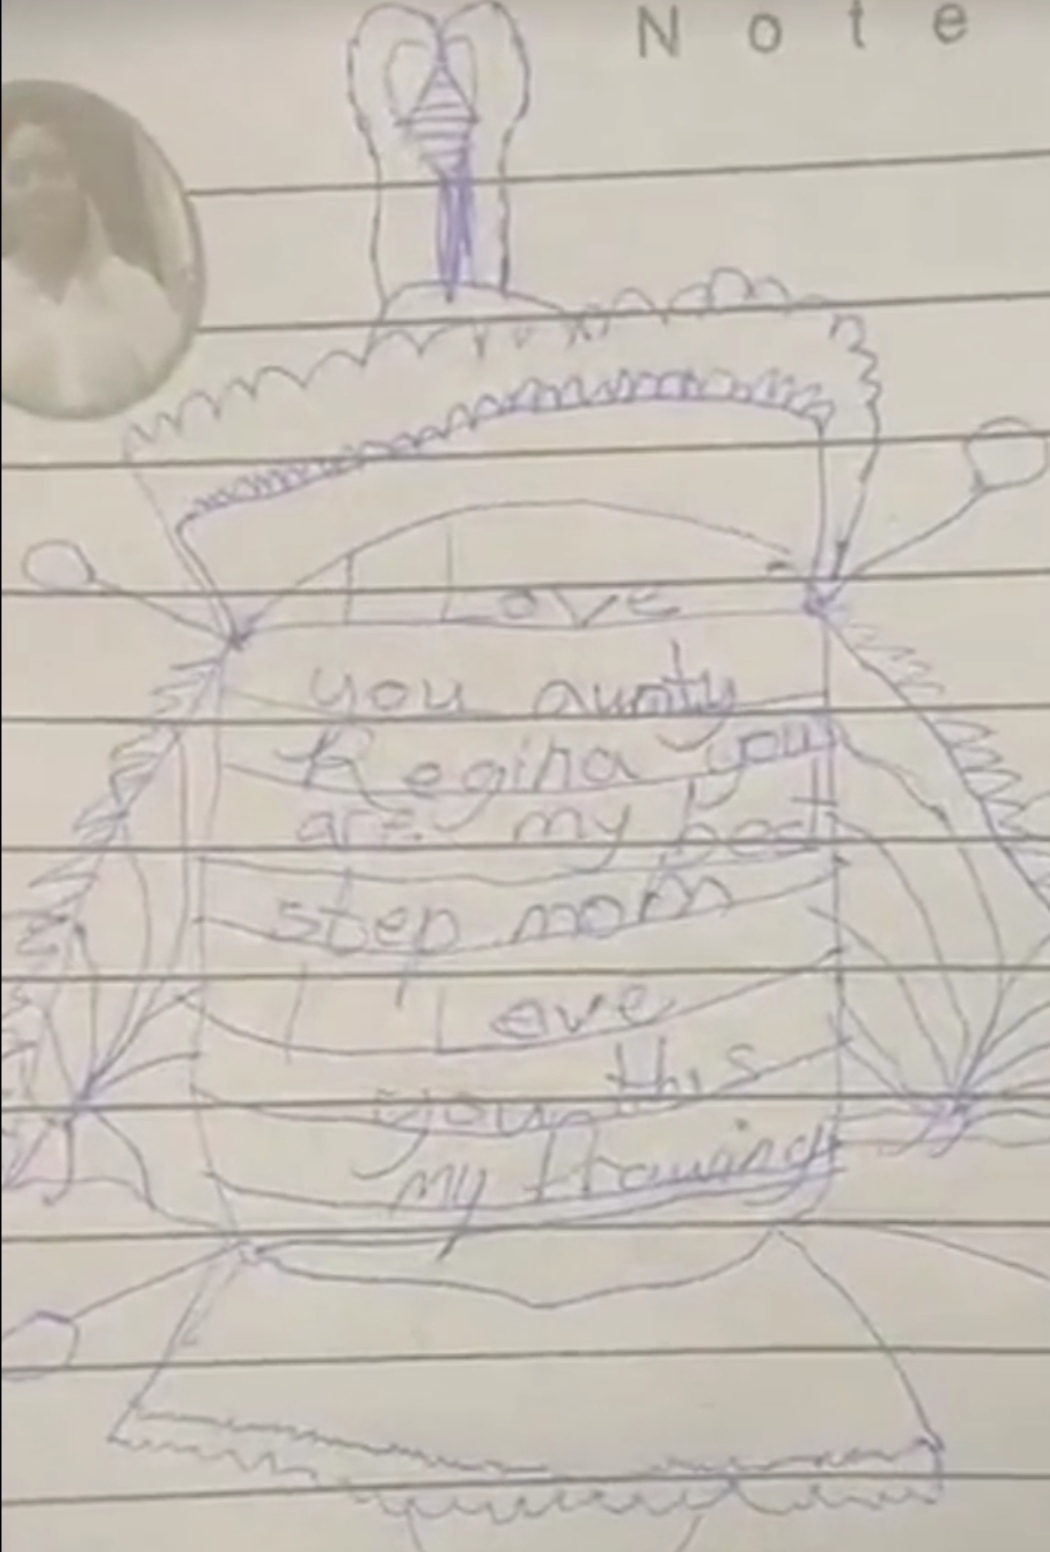 Note
I Love
you aunty
Regina you
are my best
step mom
I Love
you this
my trawing